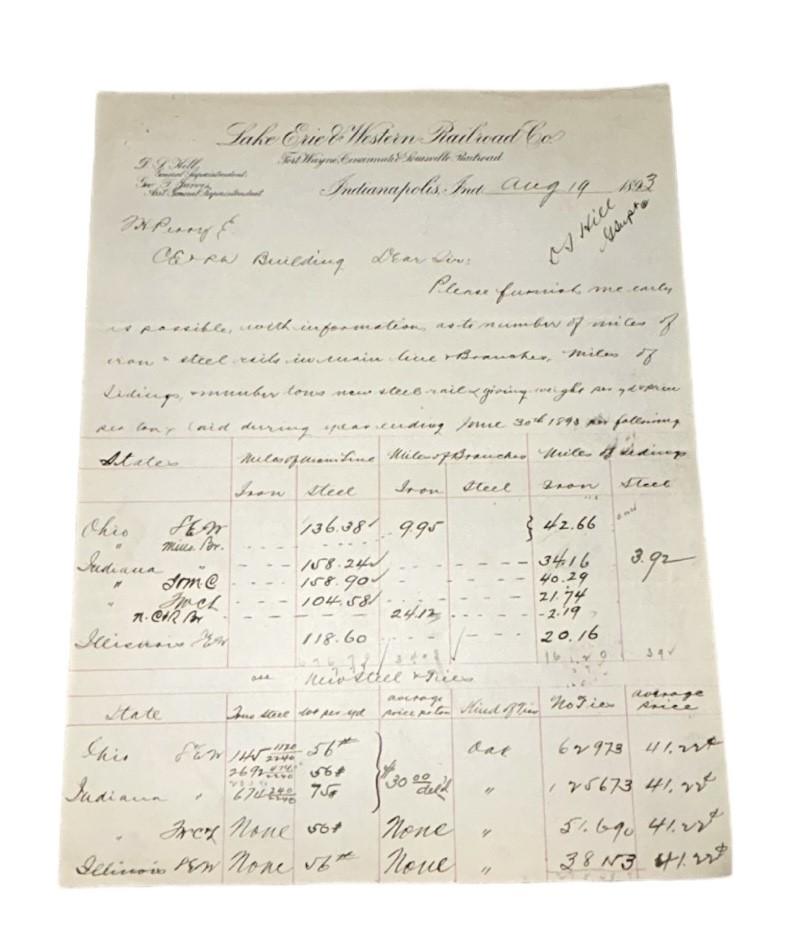 Lake Erie & Western Railroad Co
Fort Wayne, Cincinnati & Louisville Railroad
General Superintendent
Asst. General Superintendent
Indianapolis, Ind Aug 19 1893
Hill
Building Dear Sir:
Please furnish me early
as possible, with information as to number of miles of
iron & steel rails in main line & Branches, Miles of
Sidings, & number tons new steel rail & giving weight per yd &
per ton, laid during year ending June 30th 1893 per following
States Miles of Main Line Miles of Branches Miles of Sidings
Iron Steel Iron Steel Iron Steel
Ohio LEW 136.38 9.95 42.66
" Br.
Indiana " 158.24 34.16 3.92
" 158.90 40.29
" 104.58 21.74
Br 24.12 2.19
Illinois LEW 118.60 20.16
New Steel & Ties
State Tons steel wt per yd average price per ton Kind of Ties No Ties average price
Ohio LEW 145 1120/2240 56# Oak 62973 41.22¢
2692 56#
Indiana " 674 240/2240 75# $30 00 del'd " 125673 41.22¢
" None 56# None " 51.690 41.22¢
Illinois LEW None 56# None " 38153 41.22¢